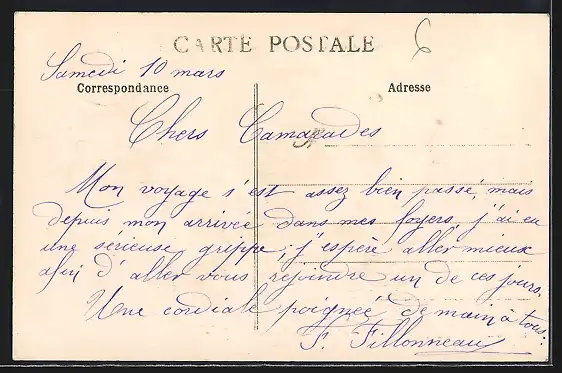 CARTE POSTALE
6
Samedi 10 mars
Correspondance
Adresse
Chers Camarades
Mon voyage s'est assez bien passé, mais
depuis mon arrivée dans mes foyers, j'ai eu
une sérieuse grippe; j'espère aller mieux
afin d'aller vous rejoindre un de ces jours.
Une cordiale poignée de main à tous.
F. Fillonneau